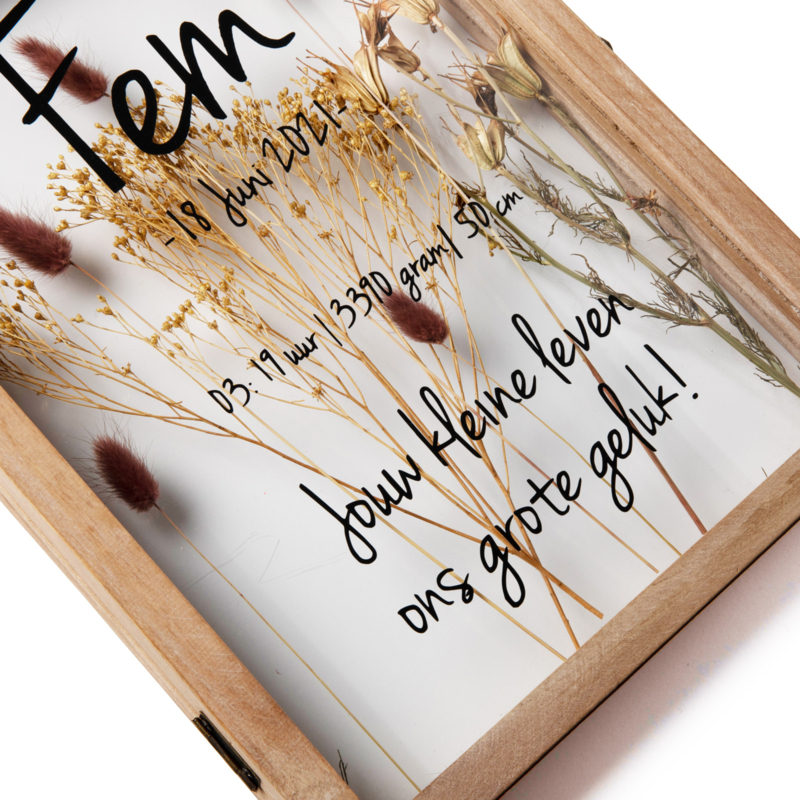 Fem
-18 Juni 2021-
03:19 uur | 3390 gram | 50 cm
Jouw kleine leven
ons grote geluk!